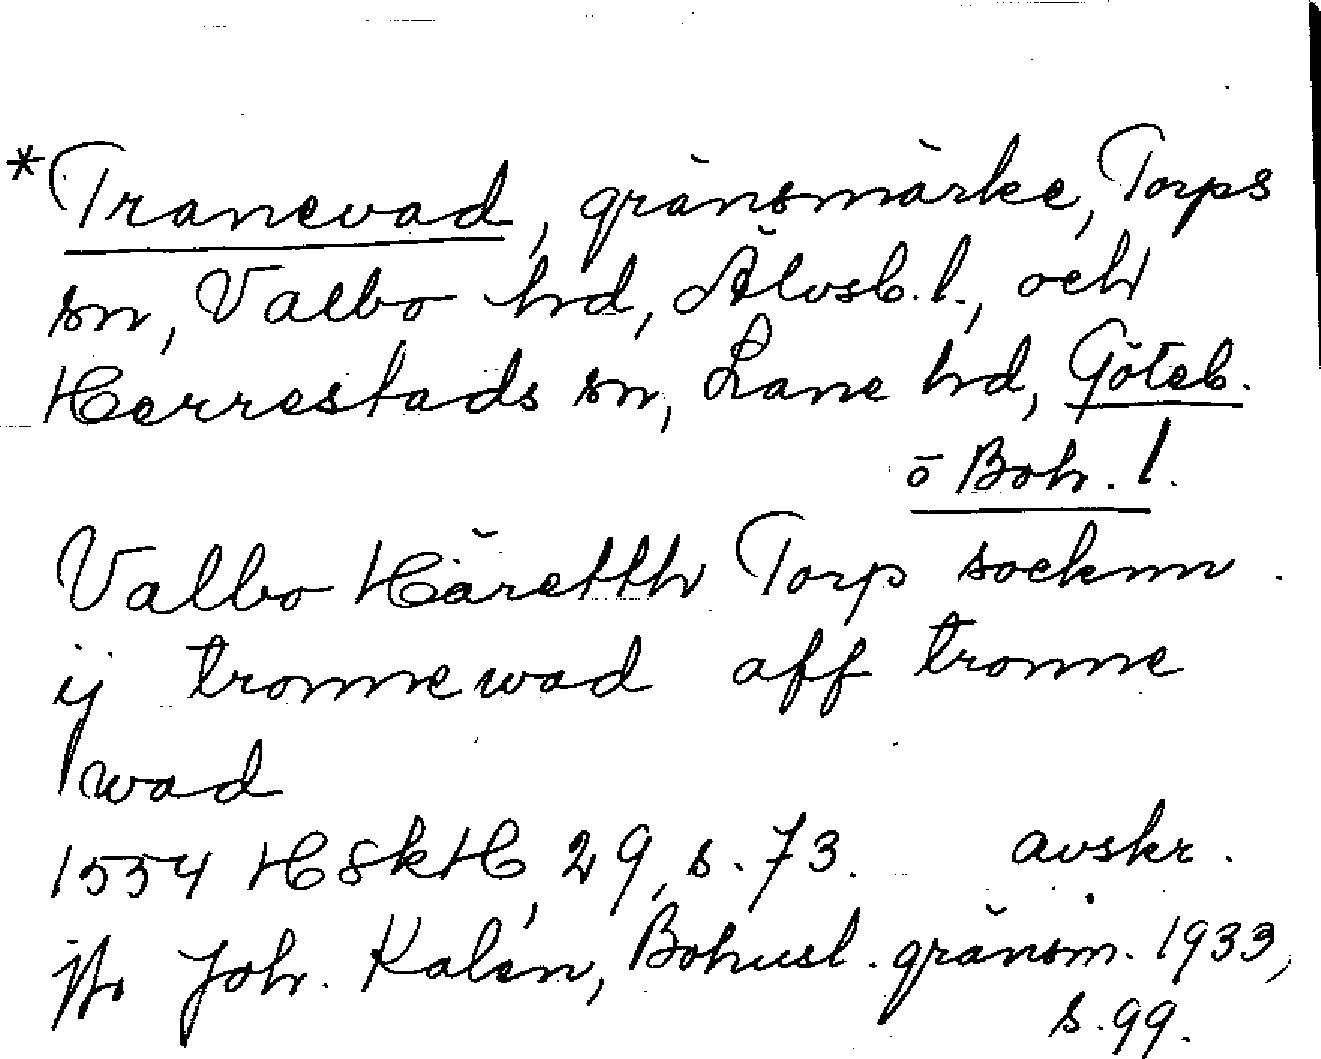 *Tranevad, gränsmärke, Torps
sn, Valbo hd, Älvsb. l., och
Herrestads sn, Lane hd, Göteb.
o Boh. l.
Valbo Häretth Torp socknn
ij tronnewad aff tronne
wad
1554 HSkH, 29, s. 73. avskr.
jfr Joh. Kalén, Bohusl. gränsm. 1933,
s. 99.